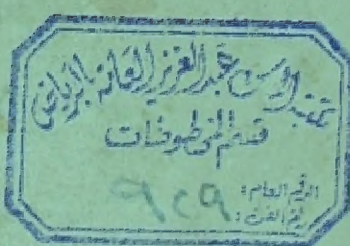 مكتبة الملك عبد العزيز العامة بالرياض
قسم المخطوطات
الرقم العام: ٩٢٩
رقم الفن: